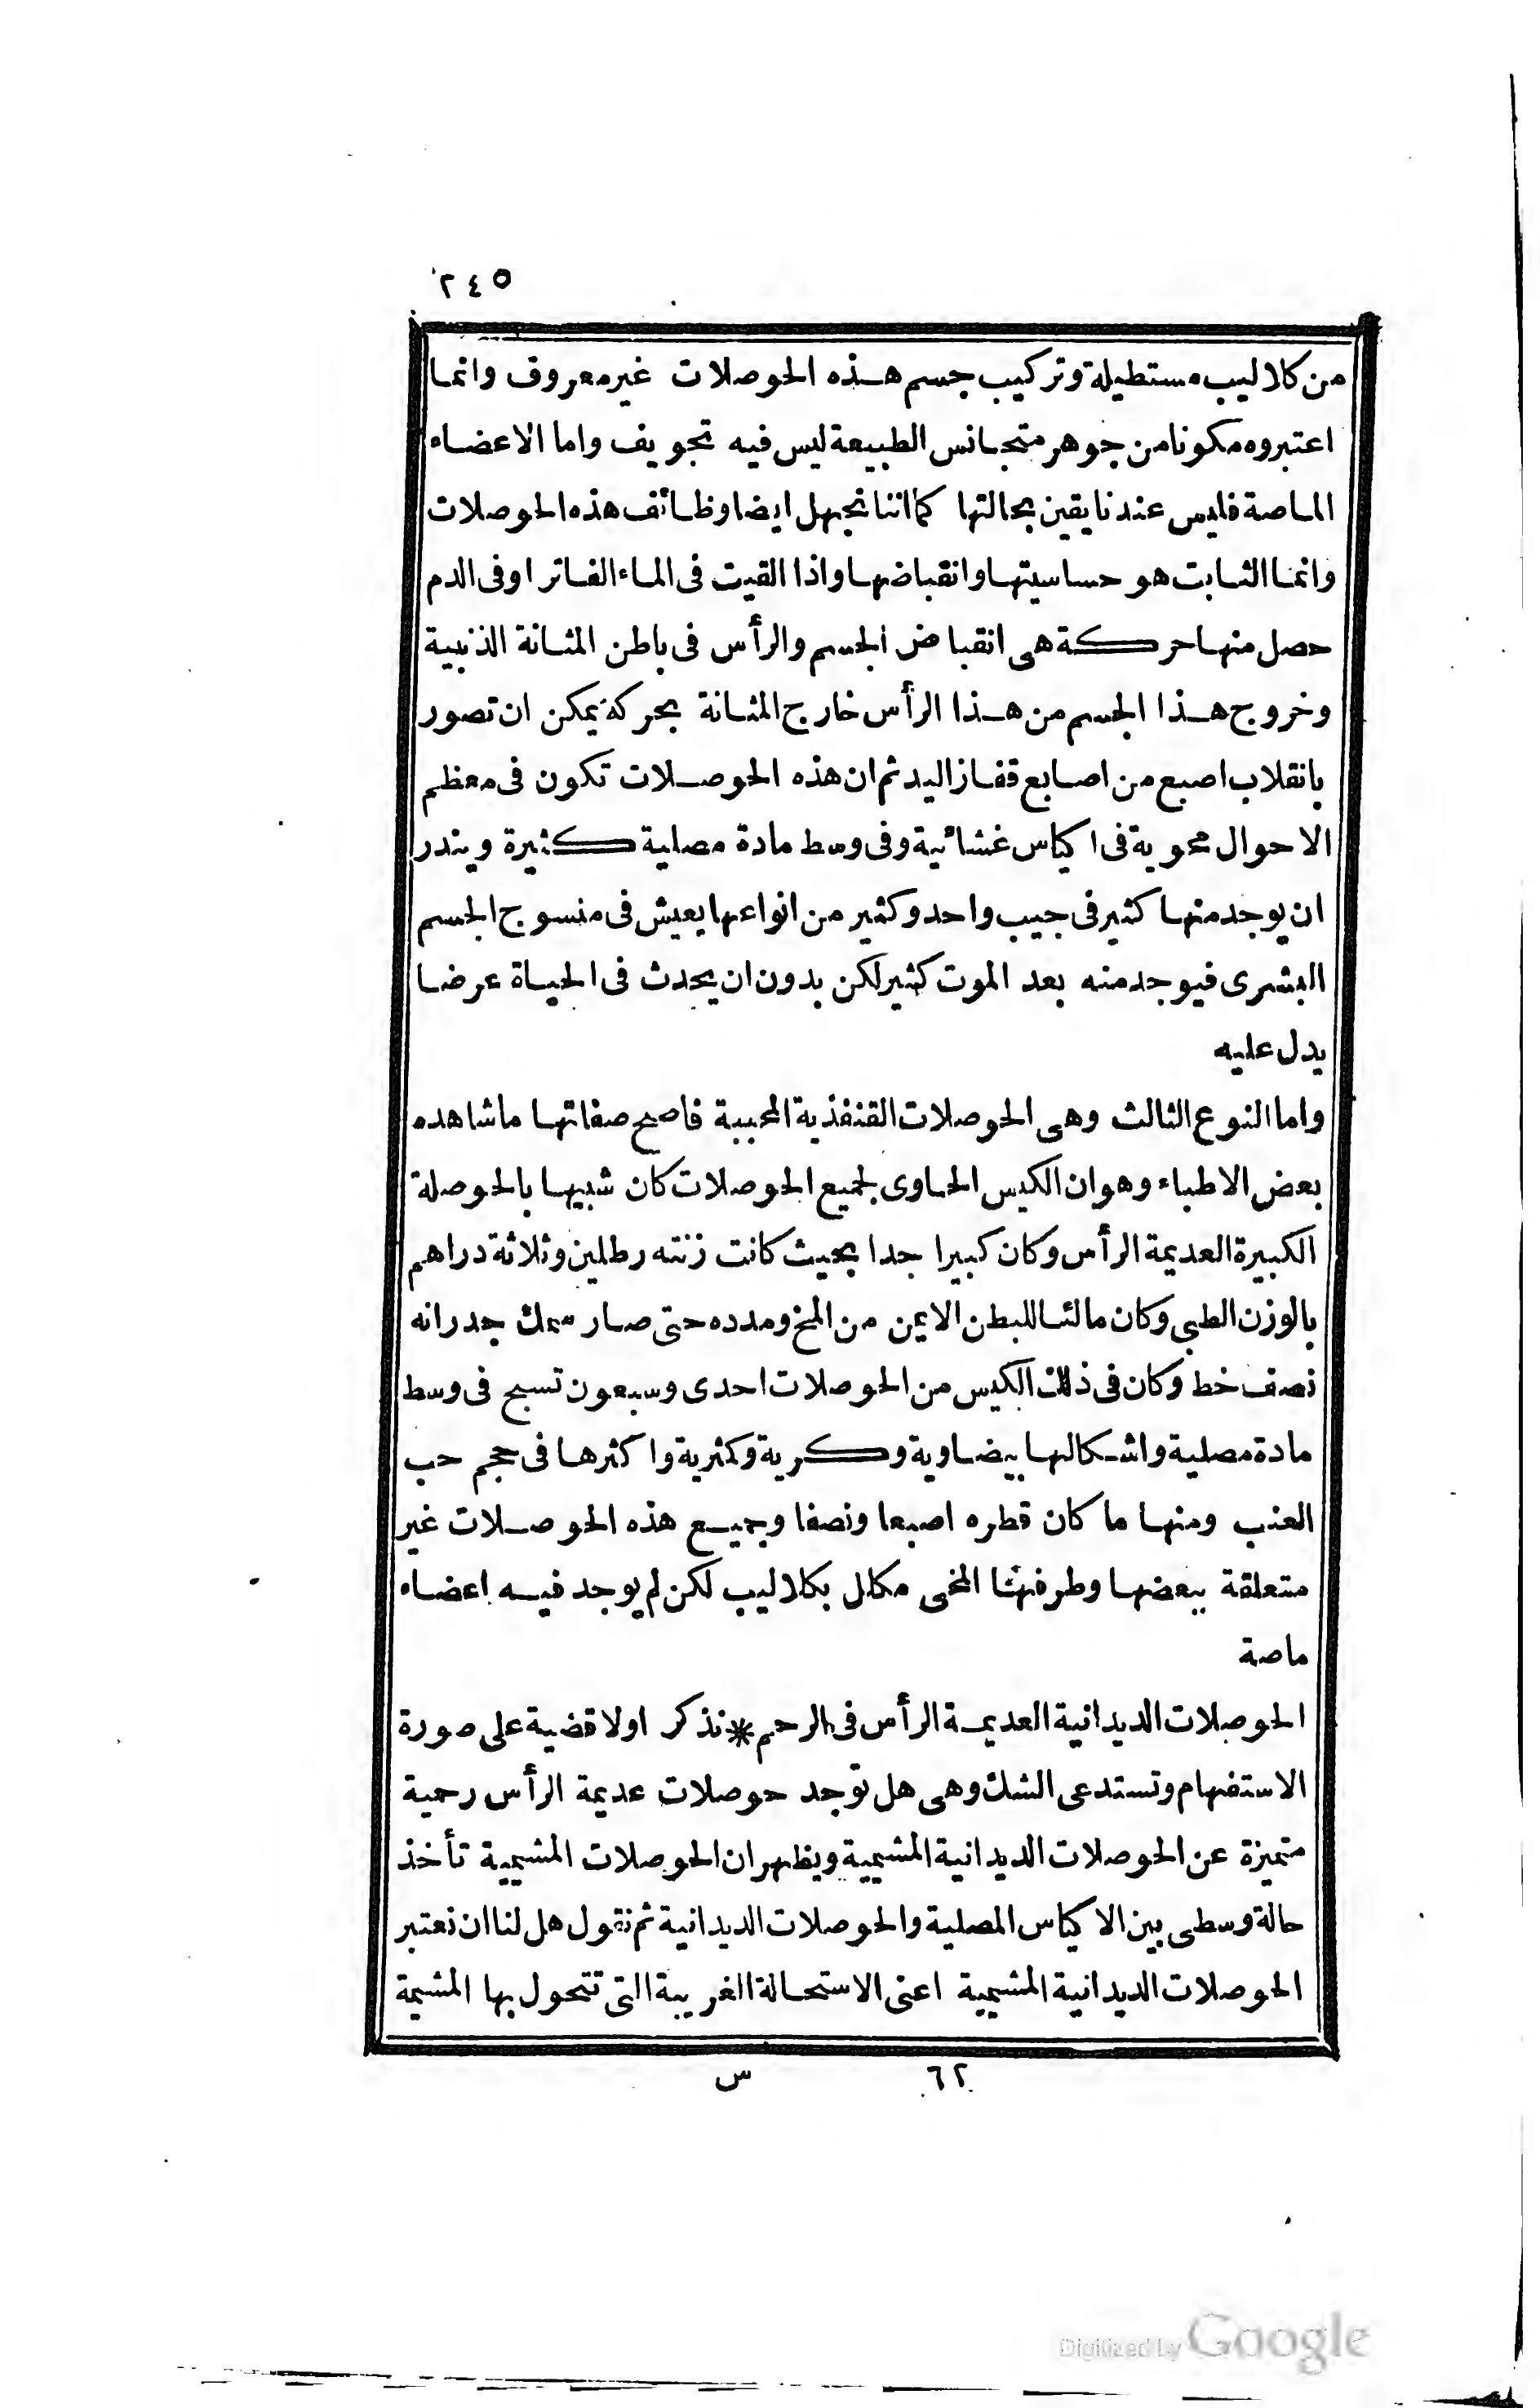 ٢٤٥
من كلاليب مستطيلة وتركيب جسم هذه الحوصلات غير معروف وانما
اعتبروه مكونا من جوهر متجانس الطبيعة ليس فيه تجويف واما الاعضاء
الماصة فليس عندنا يقين بحالتها كما اننا نجهل ايضا وظائف هذه الحوصلات
وانما الثابت هو حساسيتها وانقباضها واذا القيت فى الماء الفاتر او فى الدم
حصل منها حركة هى انقباض الجسم والرأس فى باطن المثانة الذنبية
وخروج هذا الجسم من هذا الرأس خارج المثانة بحركة يمكن ان تصور
بانقلاب اصبع من اصابع قفاز اليد ثم ان هذه الحوصلات تكون فى معظم
الاحوال محوية فى اكياس غشائية وفى وسط مادة مصلية كثيرة ويندر
ان يوجد منها كثير فى جيب واحد وكثير من انواعها يعيش فى منسوج الجسم
البشرى فيوجد منه بعد الموت كثير لكن بدون ان يحدث فى الحياة عرضا
يدل عليه
واما النوع الثالث وهى الحوصلات القنفذية المحببة فاصح صفاتها ما شاهده
بعض الاطباء وهو ان الكيس الحاوى لجميع الحوصلات كان شبيها بالحوصلة
الكبيرة العديمة الرأس وكان كبيرا جدا بحيث كانت زنته رطلين وثلاثة دراهم
بالوزن الطبى وكان مالئا للبطن الايمن من المخ ومدده حتى صار سمك جدرانه
نصف خط وكان فى ذلك الكيس من الحوصلات احدى وسبعون تسبح فى وسط
مادة مصلية واشكالها بيضاوية وكرية وكمثرية واكثرها فى حجم حب
العنب ومنها ما كان قطره اصبعا ونصفا وجميع هذه الحوصلات غير
متعلقة ببعضها وطرفها المخى مكلل بكلاليب لكن لم يوجد فيه اعضاء
ماصة
الحوصلات الديدانية العديمة الرأس فى الرحم * نذكر اولا قضية على صورة
الاستفهام وتستدعى الشك وهى هل توجد حوصلات عديمة الرأس رحمية
متميزة عن الحوصلات الديدانية المشيمية ويظهر ان الحوصلات المشيمية تأخذ
حالة وسطى بين الاكياس المصلية والحوصلات الديدانية ثم نقول هل لنا ان نعتبر
الحوصلات الديدانية المشيمية اعنى الاستحالة الغريبة التى تتحول بها المشيمة
٦٢ س
Digitized by Google